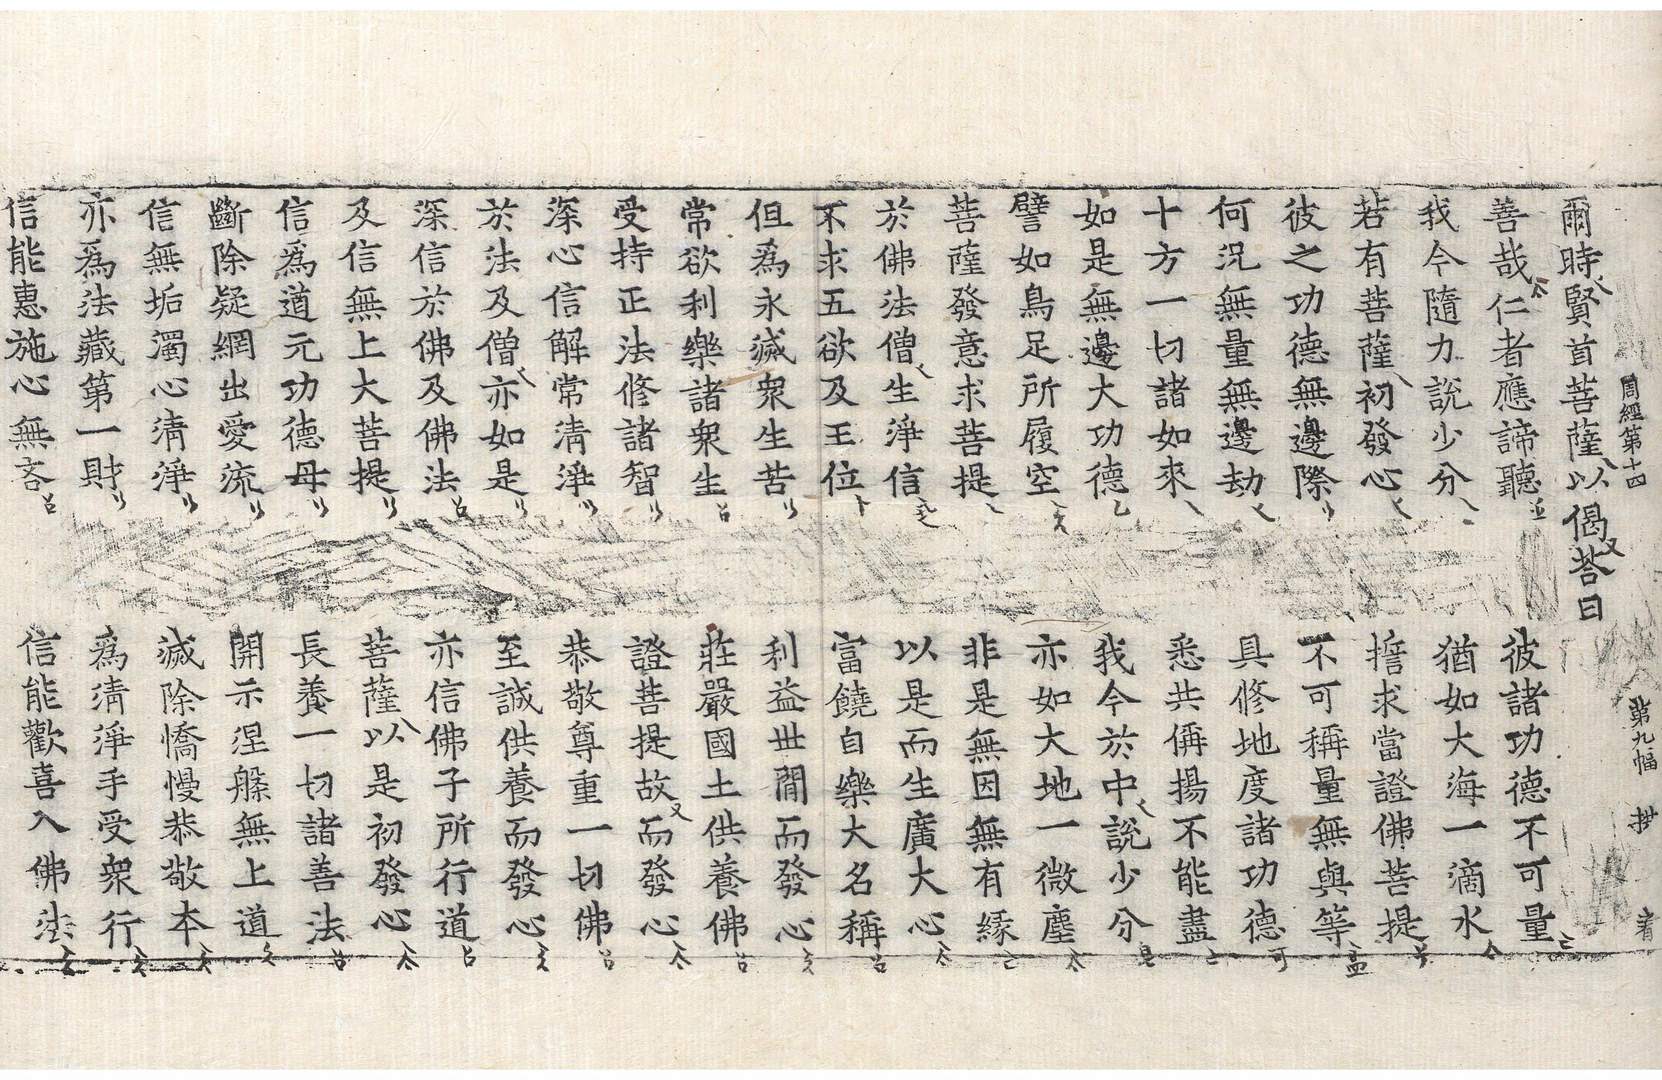 周經第十四 第九幅
爾時賢首菩薩以偈荅曰
善哉仁者應諦聽 彼諸功德不可量
我今隨力說少分 猶如大海一滴水
若有菩薩初發心 誓求當證佛菩提
彼之功德無邊際 不可稱量無與等
何況無量無邊劫 具修地度諸功德
十方一切諸如來 悉共偁揚不能盡
如是無邊大功德 我今於中說少分
譬如鳥足所履空 亦如大地一微塵
菩薩發意求菩提 非是無因無有緣
於佛法僧生淨信 以是而生廣大心
不求五欲及王位 富饒自樂大名稱
但爲永滅衆生苦 利益世間而發心
常欲利樂諸衆生 莊嚴國土供養佛
受持正法修諸智 證菩提故而發心
深心信解常清淨 恭敬尊重一切佛
於法及僧亦如是 至誠供養而發心
深信於佛及佛法 亦信佛子所行道
及信無上大菩提 菩薩以是初發心
信爲道元功德母 長養一切諸善法
斷除疑網出愛流 開示涅槃無上道
信無垢濁心清淨 滅除憍慢恭敬本
亦爲法藏第一財 爲清淨手受衆行
信能惠施心無吝 信能歡喜入佛法